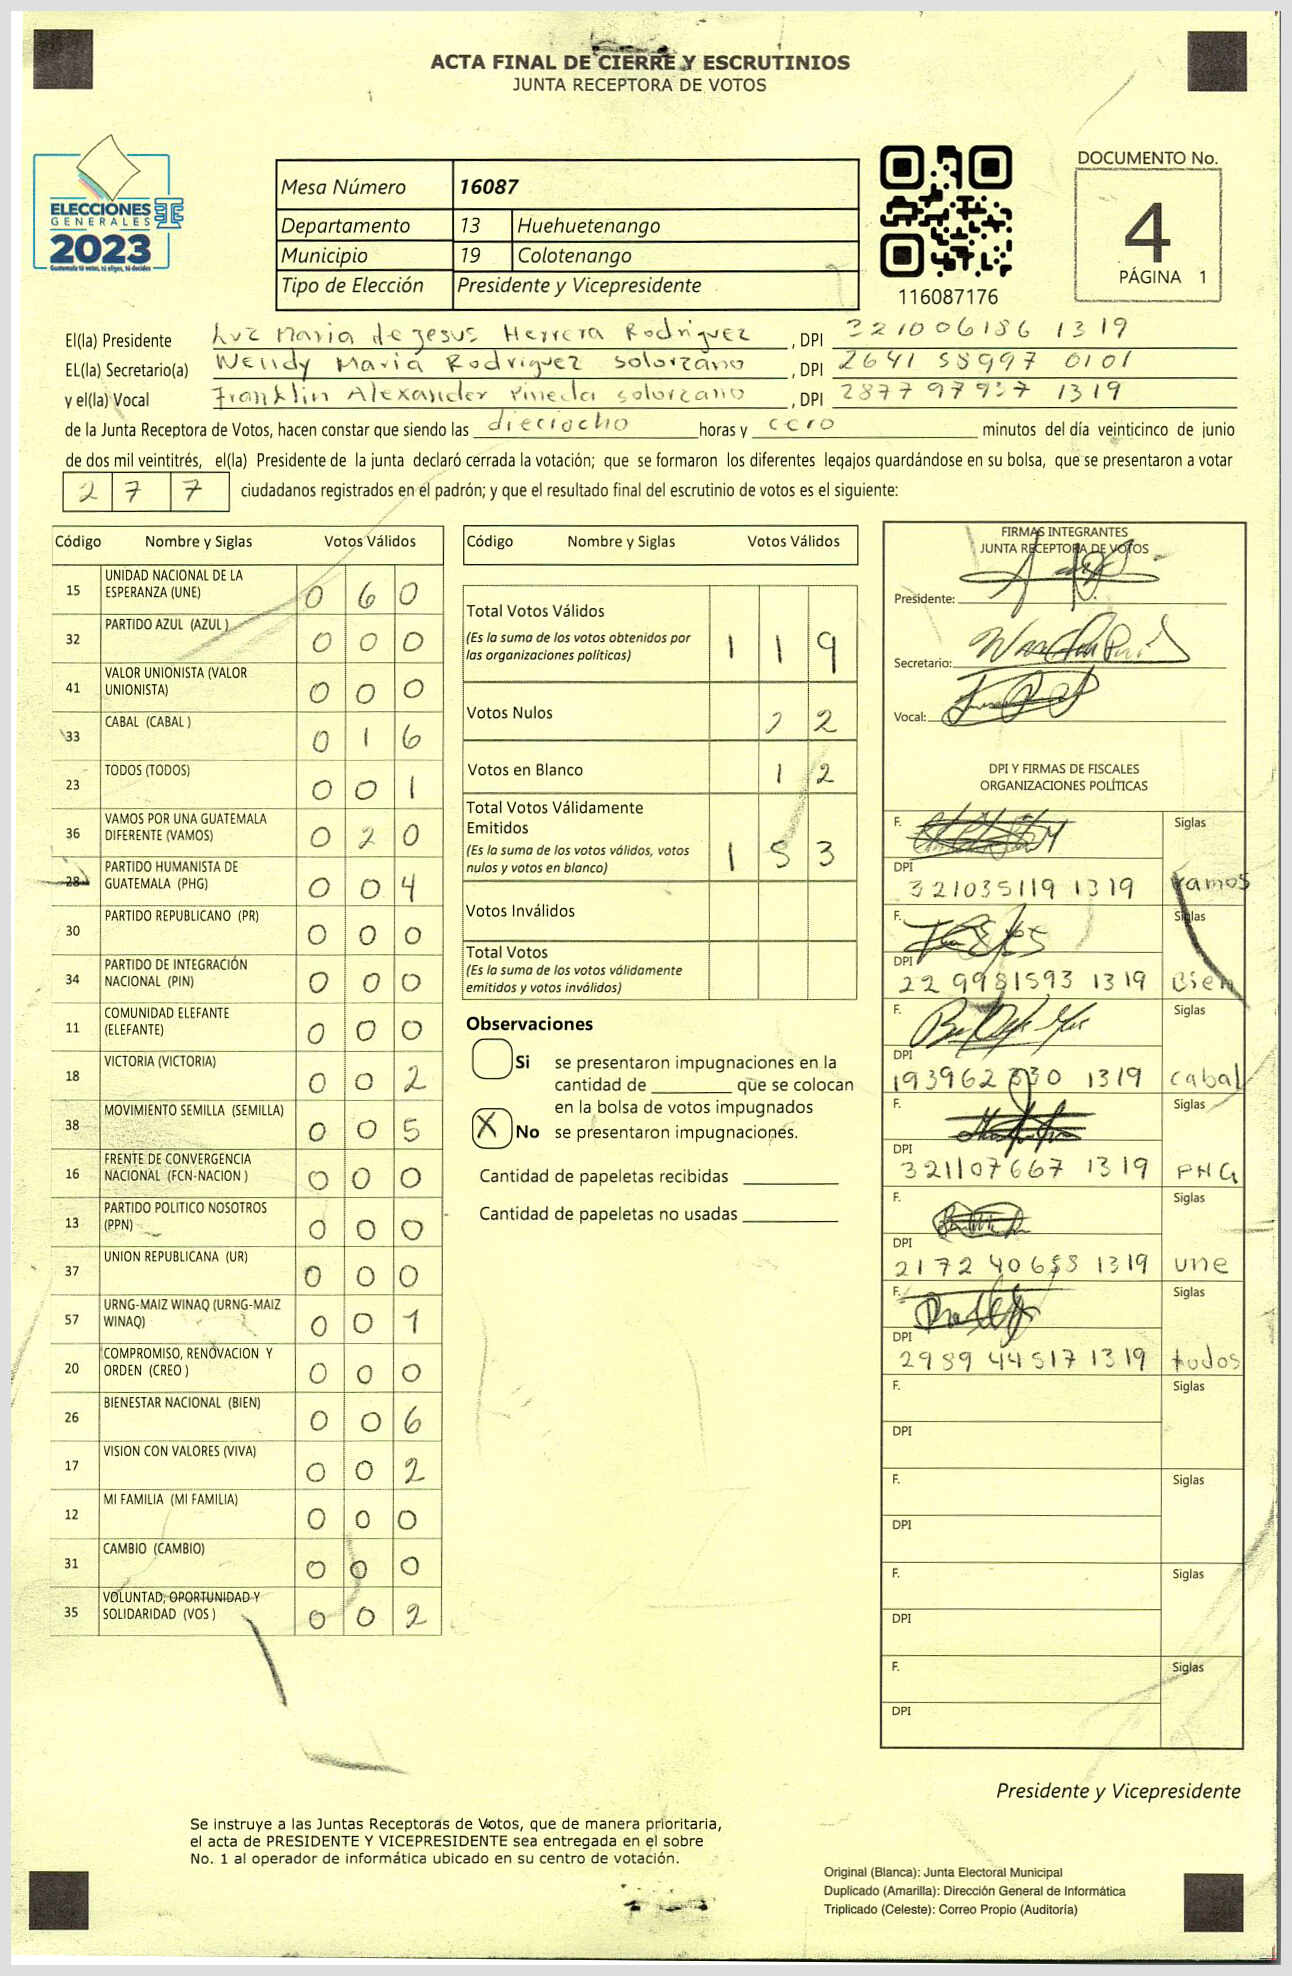 ACTA FINAL DE CIERRE Y ESCRUTINIOS
JUNTA RECEPTORA DE VOTOS
ELECCIONES
GENERALES
2023
Guatemala tú votas, tú eliges, tú decides
Mesa Número 16087
Departamento 13 Huehuetenango
Municipio 19 Colotenango
Tipo de Elección Presidente y Vicepresidente
116087176
DOCUMENTO No.
4
PÁGINA 1
El(la) Presidente Luz Maria de Jesus Herrera Rodriguez, DPI 321006186 1319
EL(la) Secretario(a) Wendy Maria Rodriguez Solorzano, DPI 2641 58997 0101
y el(la) Vocal Franklin Alexander Pineda Solorzano, DPI 2877 97937 1319
de la Junta Receptora de Votos, hacen constar que siendo las dieciocho horas y cero minutos del día veinticinco de junio
de dos mil veintitrés, el(la) Presidente de la junta declaró cerrada la votación; que se formaron los diferentes legajos guardándose en su bolsa, que se presentaron a votar
2 7 7 ciudadanos registrados en el padrón; y que el resultado final del escrutinio de votos es el siguiente:
Código Nombre y Siglas Votos Válidos
15 UNIDAD NACIONAL DE LA
ESPERANZA (UNE) 0 6 0
32 PARTIDO AZUL (AZUL) 0 0 0
41 VALOR UNIONISTA (VALOR
UNIONISTA) 0 0 0
33 CABAL (CABAL ) 0 1 6
23 TODOS (TODOS) 0 0 1
36 VAMOS POR UNA GUATEMALA
DIFERENTE (VAMOS) 0 2 0
28 PARTIDO HUMANISTA DE
GUATEMALA (PHG) 0 0 4
30 PARTIDO REPUBLICANO (PR) 0 0 0
34 PARTIDO DE INTEGRACIÓN
NACIONAL (PIN) 0 0 0
11 COMUNIDAD ELEFANTE
(ELEFANTE) 0 0 0
18 VICTORIA (VICTORIA) 0 0 2
38 MOVIMIENTO SEMILLA (SEMILLA) 0 0 5
16 FRENTE DE CONVERGENCIA
NACIONAL (FCN-NACION ) 0 0 0
13 PARTIDO POLITICO NOSOTROS
(PPN) 0 0 0
37 UNION REPUBLICANA (UR) 0 0 0
57 URNG-MAIZ WINAQ (URNG-MAIZ
WINAQ) 0 0 1
20 COMPROMISO, RENOVACION Y
ORDEN (CREO ) 0 0 0
26 BIENESTAR NACIONAL (BIEN) 0 0 6
17 VISION CON VALORES (VIVA) 0 0 2
12 MI FAMILIA (MI FAMILIA) 0 0 0
31 CAMBIO (CAMBIO) 0 0 0
35 VOLUNTAD, OPORTUNIDAD Y
SOLIDARIDAD (VOS ) 0 0 2
Código Nombre y Siglas Votos Válidos
Total Votos Válidos
(Es la suma de los votos obtenidos por
las organizaciones políticas) 1 1 9
Votos Nulos 2 2
Votos en Blanco 1 2
Total Votos Válidamente
Emitidos
(Es la suma de los votos válidos, votos
nulos y votos en blanco) 1 5 3
Votos Inválidos
Total Votos
(Es la suma de los votos válidamente
emitidos y votos inválidos)
Observaciones
Si se presentaron impugnaciones en la
cantidad de ________ que se colocan
en la bolsa de votos impugnados
X No se presentaron impugnaciones.
Cantidad de papeletas recibidas
Cantidad de papeletas no usadas
FIRMAS INTEGRANTES
JUNTA RECEPTORA DE VOTOS
Presidente:
Secretario:
Vocal:
DPI Y FIRMAS DE FISCALES
ORGANIZACIONES POLÍTICAS
F. Siglas
DPI
321035119 1319 vamos
F. Siglas
DPI
22 9981593 1319 Bien
F. Siglas
DPI
193962 330 1319 cabal
F. Siglas
DPI
321107667 1319 PHG
F. Siglas
DPI
2172 40658 1319 une
F. Siglas
DPI
2989 44517 1319 todos
F. Siglas
DPI
F. Siglas
DPI
F. Siglas
DPI
F. Siglas
DPI
Presidente y Vicepresidente
Se instruye a las Juntas Receptoras de Votos, que de manera prioritaria,
el acta de PRESIDENTE Y VICEPRESIDENTE sea entregada en el sobre
No. 1 al operador de informática ubicado en su centro de votación.
Original (Blanca): Junta Electoral Municipal
Duplicado (Amarilla): Dirección General de Informática
Triplicado (Celeste): Correo Propio (Auditoría)